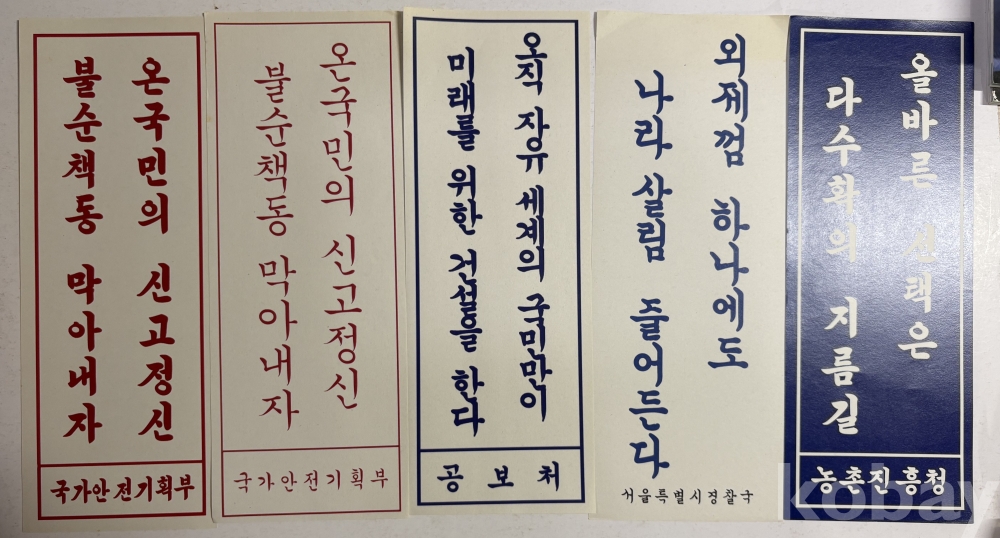 온국민의 신고정신
불순책동 막아내자
국가안전기획부
온국민의 신고정신
불순책동 막아내자
국가안전기획부
오직 자유 세계의 국민만이
미래를 위한 건설을 한다
공보처
외제껌 하나에도
나라 살림 줄어든다
서울특별시경찰국
올바른 선택은
다수확의 지름길
농촌진흥청
kobay